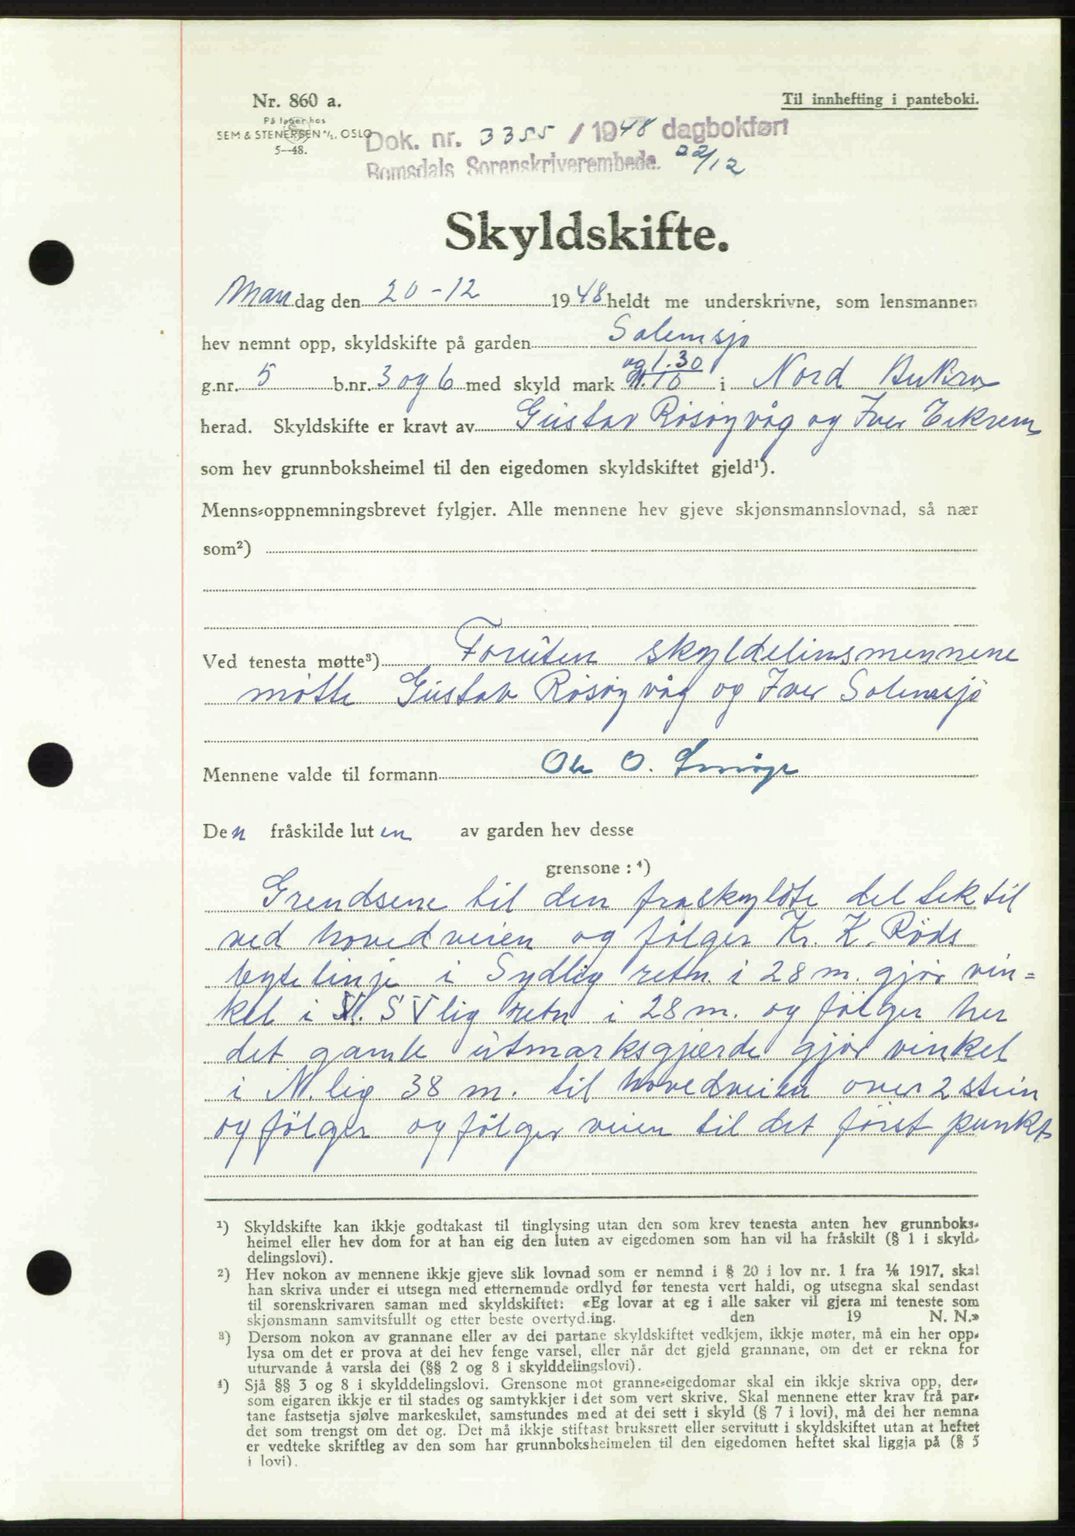 Nr. 860 a.
Til innhefting i panteboki.
På lager hos
SEM & STENERSEN A/S, OSLO
5--48.
Dok. nr. 3355 / 1948 dagbokført
Romsdals Sorenskriverembede. 22/12
Skyldskifte.
Mandag den 20-12 1948 heldt me underskrivne, som lensmannen
hev nemnt opp, skyldskifte på garden Solemsjø
g.nr. 5 b.nr. 3 og 6 med skyld mark og 1.30 0.10 i Nord Aukra
herad. Skyldskifte er kravt av Gustav Røsøyvåg og Iver Eikrem
som hev grunnboksheimel til den eigedomen skyldskiftet gjeld¹).
Menns-oppnemningsbrevet fylgjer. Alle mennene hev gjeve skjønsmannslovnad, så nær
som²)
Ved tenesta møtte³) Foruten skyldelinsmennene
møtte Gustav Røsøyvåg og Iver Solemsjø
Mennene valde til formann Ole O.
Den fråskilde luten av garden hev desse
grensone : ⁴)
Grendsene til den fraskyldte del tek til
ved hovedveien og følger Kr. K. Røds
bytelinje i Sydlig retn. i 28 m. gjør vin=
kel i SVlig retn i 28 m. og følger her
det gamle utmarksgjærde gjør vinkel
i N.lig 38 m. til hovedveien over 2 stein
og følger og følger veien til det først punkt
¹) Skyldskifte kan ikkje godtakast til tinglysing utan den som krev tenesta anten hev grunnboks-
heimel eller hev dom for at han eig den luten av eigedomen som han vil ha fråskilt (§ 1 i skyld-
delingslovi).
²) Hev nokon av mennene ikkje gjeve slik lovnad som er nemnd i § 20 i lov nr. 1 fra 1/6 1917, skal
han skriva under ei utsegn med etternemnde ordlyd før tenesta vert haldi, og utsegna skal sendast
til sorenskrivaren saman med skyldskiftet: «Eg lovar at eg i alle saker vil gjera mi teneste som
skjønsmann samvitsfullt og etter beste overtyd.ing. den 19 N. N.»
³) Dersom nokon av grannane eller av dei partane skyldskiftet vedkjem, ikkje møter, må ein her opp-
lysa om det er prova at dei hev fenge varsel, eller når det gjeld grannane, om det er rekna for
uturvande å varsla dei (§§ 2 og 8 i skylddelingslovi).
⁴) Sjå §§ 3 og 8 i skylddelingslovi. Grensone mot granne-eigedomar skal ein ikkje skriva opp, der-
som eigaren ikkje er til stades og samtykkjer i det som vert skrive. Skal mennene etter krav frå par-
tane fastsetja sjølve markeskilet, samstundes med at dei sett i skyld (§ 7 i lovi), må dei her nemna
det som trengst om det og. Det må ikkje stiftast bruksrett eller servitutt i skyldskiftet utan at heftet
er vedteke skriftleg av den som har grunnboksheimelen til den eigedomen heftet skal liggja på (§ 5
i lovi).